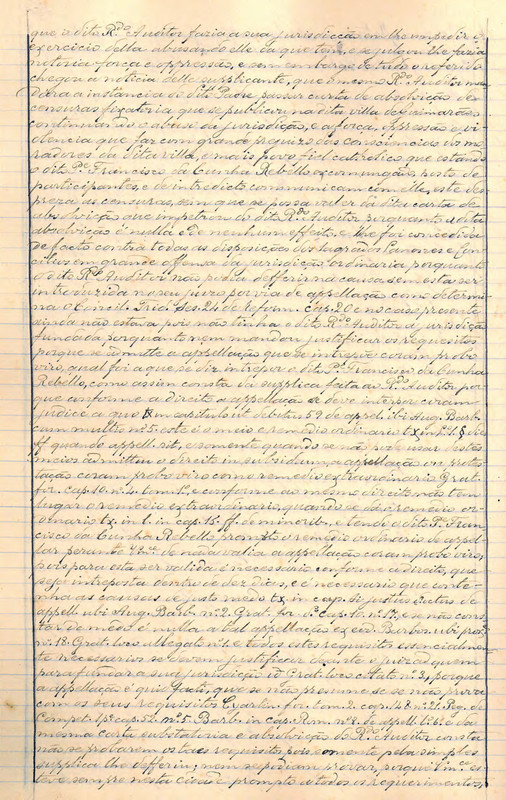 que o dito R.do Auditor fazia a sua jurisdicção em lhe impedir o
exercicio della abusando elle da que tem, e se julgou lhe fazia
notoria força e oppressão, e sem embargo de tudo o referido
chegou á noticia delle supplicante, que o mesmo R.do Auditor man
dára a instancia do dito Padre passar carta de absolvição de
censuras fixatoria que se publicou na dita villa de Guimarães
continuando o abuso da jurisdição, e a força, oppressão e vio
lencia que faz com grande prejuizo das consciencias dos mo
radores da dita villa, e mais povo fiel catholico que estando
o dito P.e Francisco da Cunha Rebello excommungado, posto de
participantes, e de interdicto communicam com elle, este des
preza as censuras, sem que se possa valer da dita carta de
absolvição que impetrou do dito R.do Auditor porquanto a dita
absolvição é nulla e de nenhum effeito, e lhe foi concedida
de facto contra todas as disposições dos Sagrados Canones e Con
cilios em grande offensa da jurisdição ordinaria porquanto
o dito R.do Auditor não podia defferir na causa, sem esta ser
introduzida no seu juizo por via de appellação como determi
na o Concil. Trid. Ses. 24 de Reform. Cap. 20 e no caso presente
ainda não estava pois não tinha o dito R.do Auditor a jurisdição
fundada porquanto nem mandou justificar os requesitos
porque se admitte a appellação que se interpõe coram probo
viro, a qual foi a que se diz interpor o dito P.e Francisco da Cunha
Rebello, como assim consta da supplica feita ao R.do Auditor por
que conforme a direito a appellação se deve interpor coram
judice a quo tx in capitulo ut debitus 59 de appel. ibi Aug. Barb.
cum multis n.o 5. este é o meio e remedio ordinario tx in L. 1. §
ff quando appell. sit, e somente quando se não pode usar destes
meios admittiu o direito in subsidium a appellação ou protes
tação coram probo viro como remedio extraordinario Grat.
for. cap. 10. n.o 4. tom. 1.o, e conforme ao mesmo direito não tem
lugar o remedio extraordinario, quando se dá o remedio or
dinario tx. in L. in cap. 15. ff. de minorib., e tendo o dito P.e Fran
cisco da Cunha Rebello prompto o remedio ordinario de appel
lar perante não valia a appellação coram probo viro,
pois para esta ser valida é necessario, conforme a direito, que
seja interposta dentro de dez dias, e é necessario que conte
nha as causas de justo medo tx in cap. Si justus metus de
appell. ubi Aug. Barb. n.o 2. Grat. for. cap. 10. n.o 17, e se não cons
tar do medo é nulla a tal appellação ex eod. Barbos. ubi prox.
n.o 18. Grat. loco allegato n.o 1. e todos estes requisitos essencialmen
te necessarios se devem justificar diante o juiz ad quem
para fundar a sua jurisdição id Grat. loco citato n.o 3, porque
a appellação é quid facti, que se não presume se se não prova
com os seus requisitos for. tom. 2. cap. 148 n.o 21. Peg. de
Compet. 1.p. cap. 52. n.o 5. Barb. in cap. Rom. n.o 8. de appell. L. 6. e da
mesma carta substatoria e absolvição do R.do Auditor consta
não se provarem os taes requisitos, pois somente pela simples
supplica lhe defferiu; nem se podiam provar, porque
teve sempre nesta cidade prompto a todos os requerimentos,